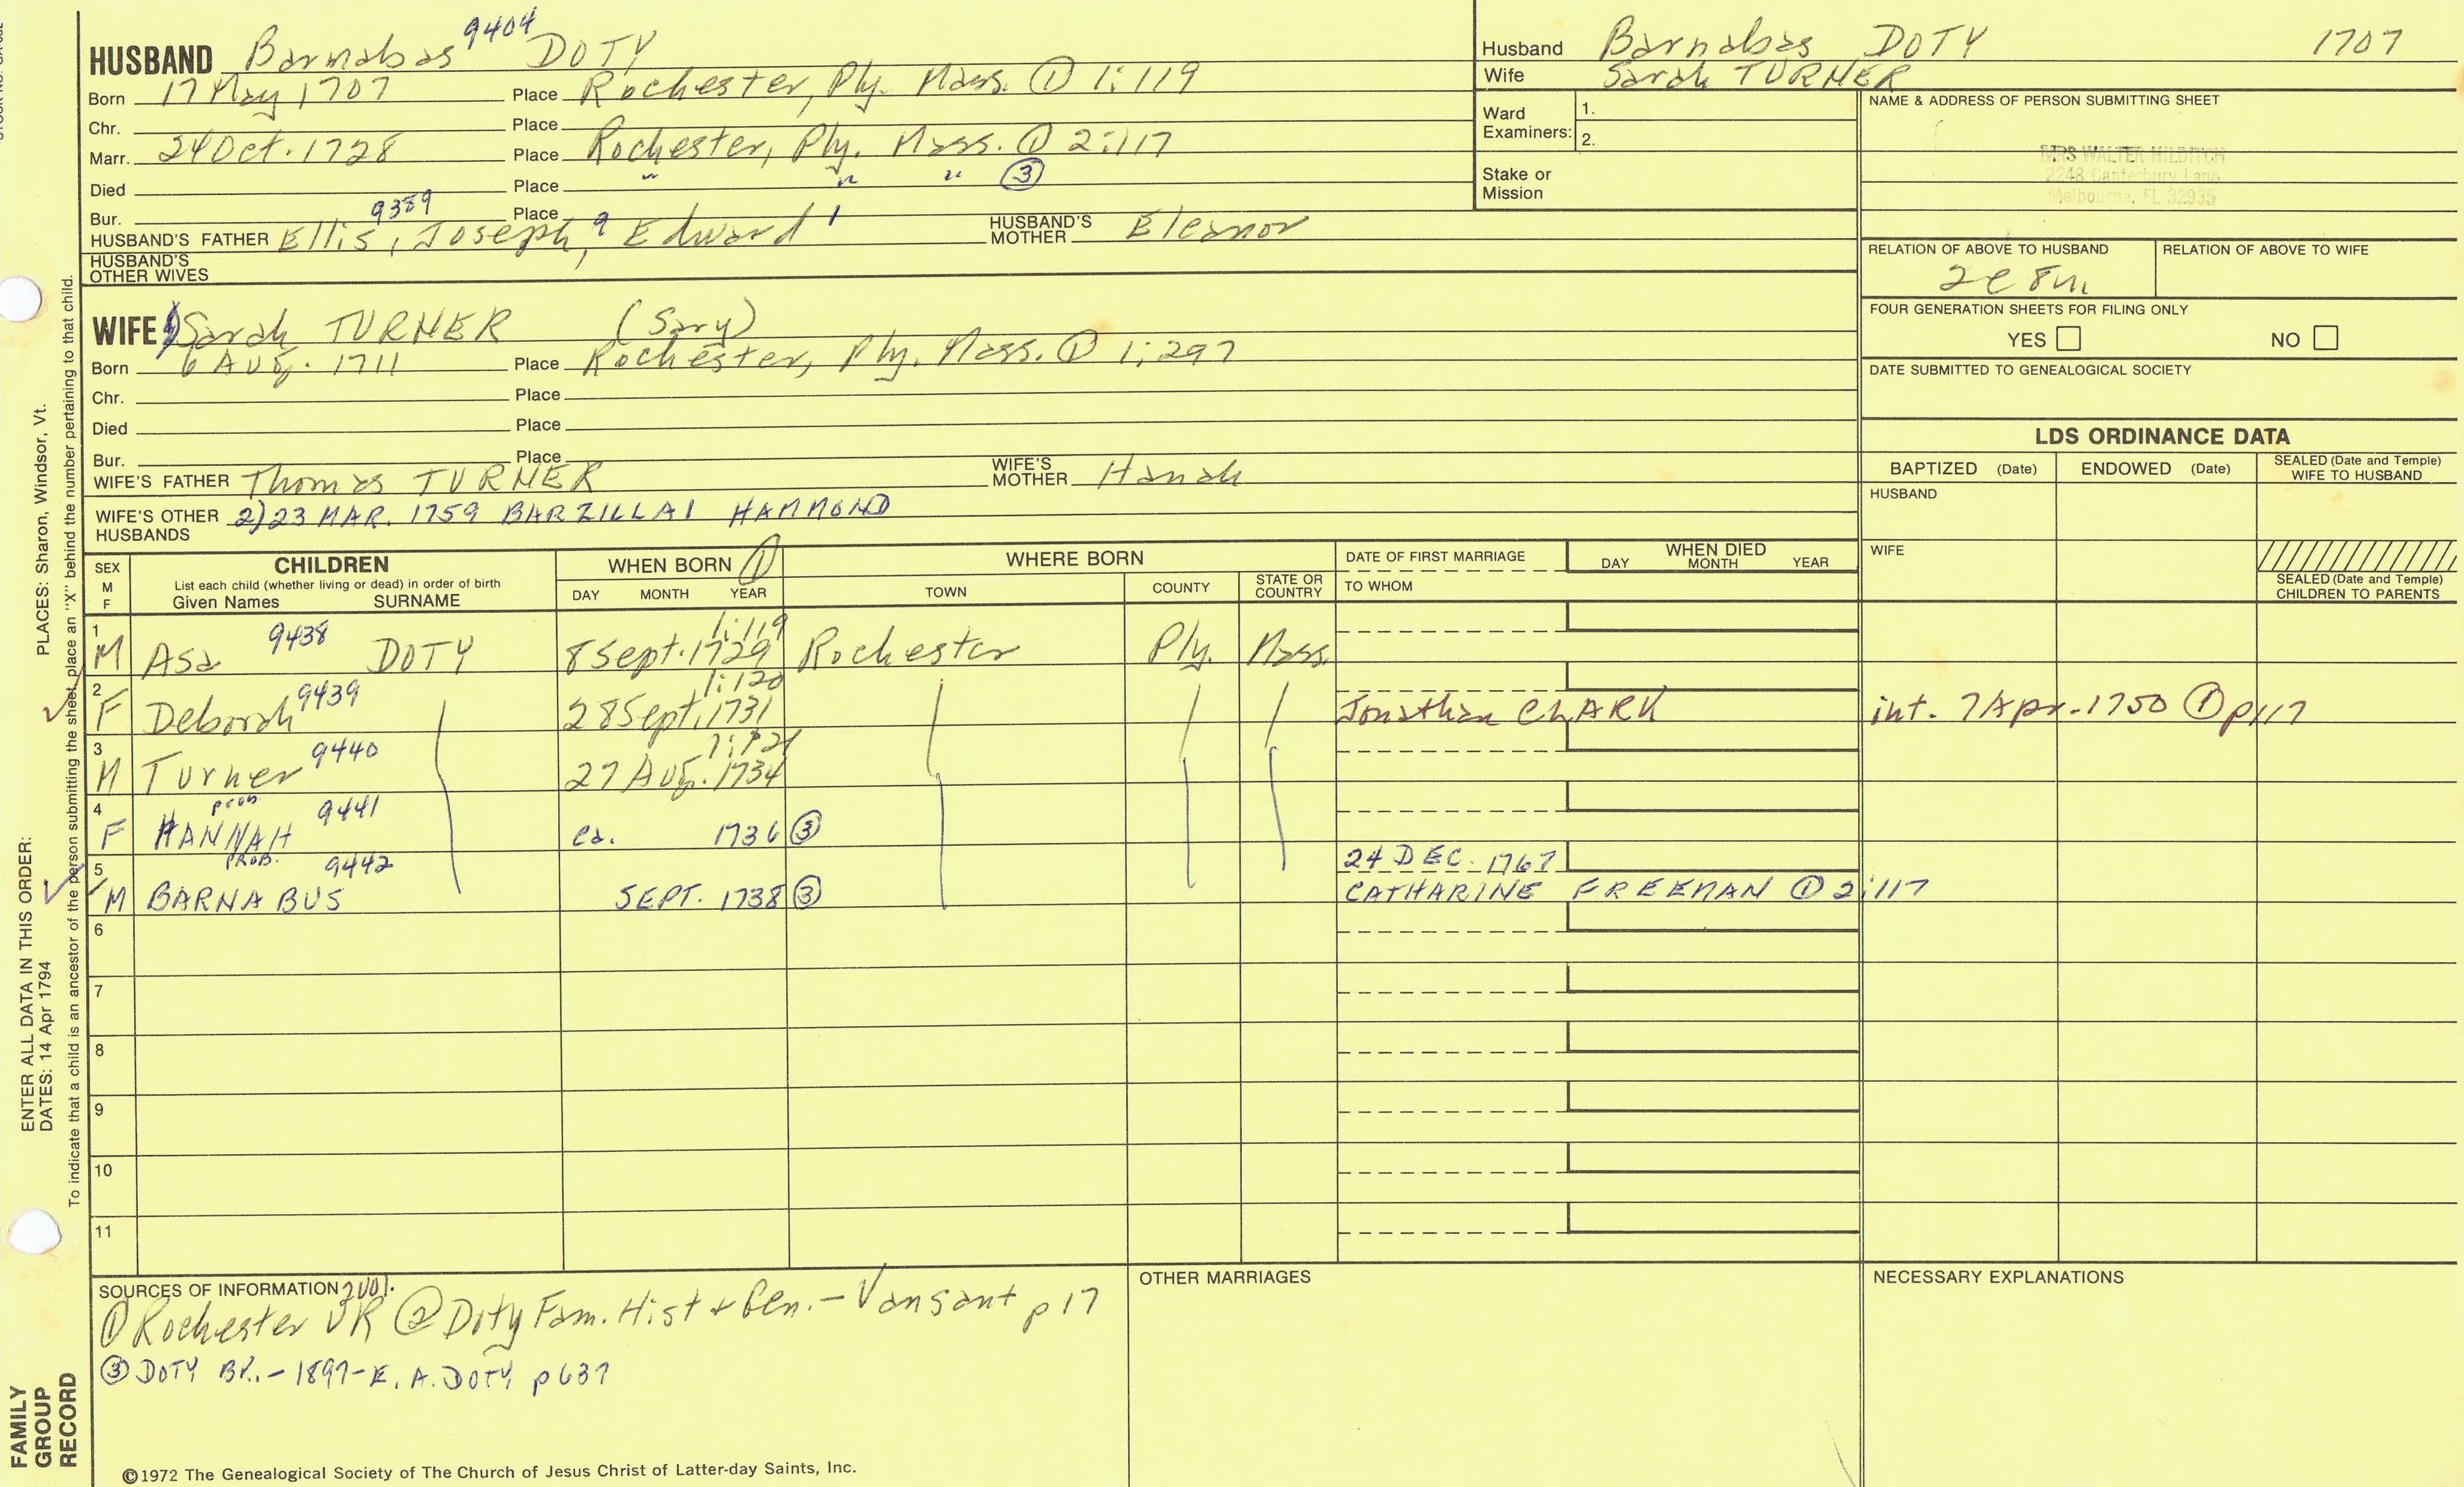 HUSBAND Barnabas 9404 DOTY
Born 17 May 1707 Place Rochester, Ply. Mass. ① 1:119
Chr. Place
Marr. 24 Oct. 1728 Place Rochester, Ply. Mass. ① 2:117
Died Place " " " ③
Bur. Place
HUSBAND'S FATHER 9389 Ellis, Joseph, Edward 1 HUSBAND'S MOTHER Eleanor
HUSBAND'S OTHER WIVES
WIFE Sarah TURNER (Sary)
Born 6 Aug. 1711 Place Rochester, Ply. Mass. ① 1:297
Chr. Place
Died Place
Bur. Place
WIFE'S FATHER Thomas TURNER WIFE'S MOTHER Hanah
WIFE'S OTHER HUSBANDS 2) 23 MAR. 1759 BARZILLAI HAMMOND
Husband Barnabas DOTY 1707
Wife Sarah TURNER
Ward Examiners: 1.
2.
Stake or Mission
NAME & ADDRESS OF PERSON SUBMITTING SHEET
MRS WALTER HILDITCH
2248 Canterbury Lane
Melbourne, FL 32935
RELATION OF ABOVE TO HUSBAND RELATION OF ABOVE TO WIFE
2c 8m
FOUR GENERATION SHEETS FOR FILING ONLY
YES NO
DATE SUBMITTED TO GENEALOGICAL SOCIETY
LDS ORDINANCE DATA
BAPTIZED (Date) ENDOWED (Date) SEALED (Date and Temple) WIFE TO HUSBAND
HUSBAND
WIFE
SEALED (Date and Temple) CHILDREN TO PARENTS
SEX M F
CHILDREN
List each child (whether living or dead) in order of birth
Given Names SURNAME
WHEN BORN ①
DAY MONTH YEAR
WHERE BORN
TOWN COUNTY STATE OR COUNTRY
DATE OF FIRST MARRIAGE
TO WHOM
WHEN DIED
DAY MONTH YEAR
1 M Asa 9438 DOTY 8 Sept. 1729 1:119 Rochester Ply. Mass.
2 F Deborah 9439 28 Sept. 1731 1:120 Jonathan CLARK int. 7 Apr. 1750 ① p117
3 M Turner 9440 27 Aug. 1734 1:121
4 F prob. HANNAH 9441 ca. 1736 ③
5 M PROB. BARNABUS 9442 SEPT. 1738 ③ 24 DEC. 1767 CATHARINE FREEMAN ① 2:117
6
7
8
9
10
11
SOURCES OF INFORMATION 2 Vol.
① Rochester VR ② Doty Fam. Hist & Gen. - Vansant p 17
③ DOTY BK. - 1897 - E. A. DOTY p 637
OTHER MARRIAGES
NECESSARY EXPLANATIONS
©1972 The Genealogical Society of The Church of Jesus Christ of Latter-day Saints, Inc.
FAMILY GROUP RECORD
ENTER ALL DATA IN THIS ORDER: PLACES: Sharon, Windsor, Vt.
DATES: 14 Apr 1794
To indicate that a child is an ancestor of the person submitting the sheet, place an "X" behind the number pertaining to that child.